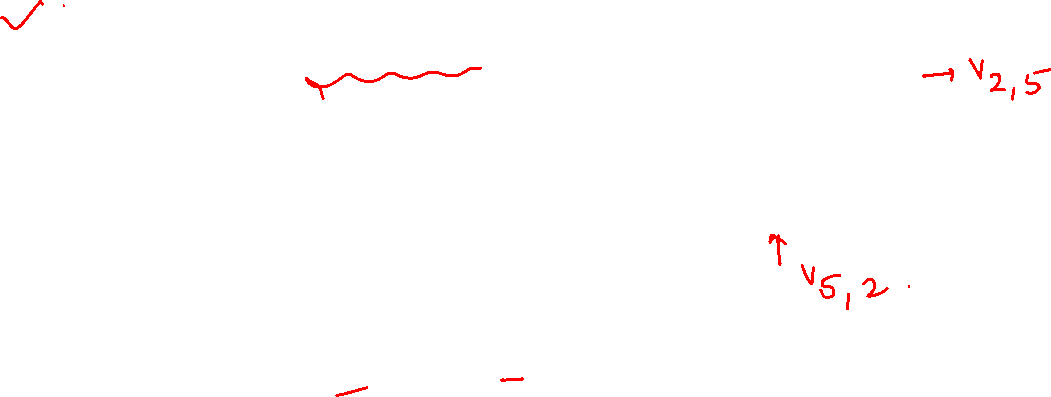 → v2,5
↑ v5,2.